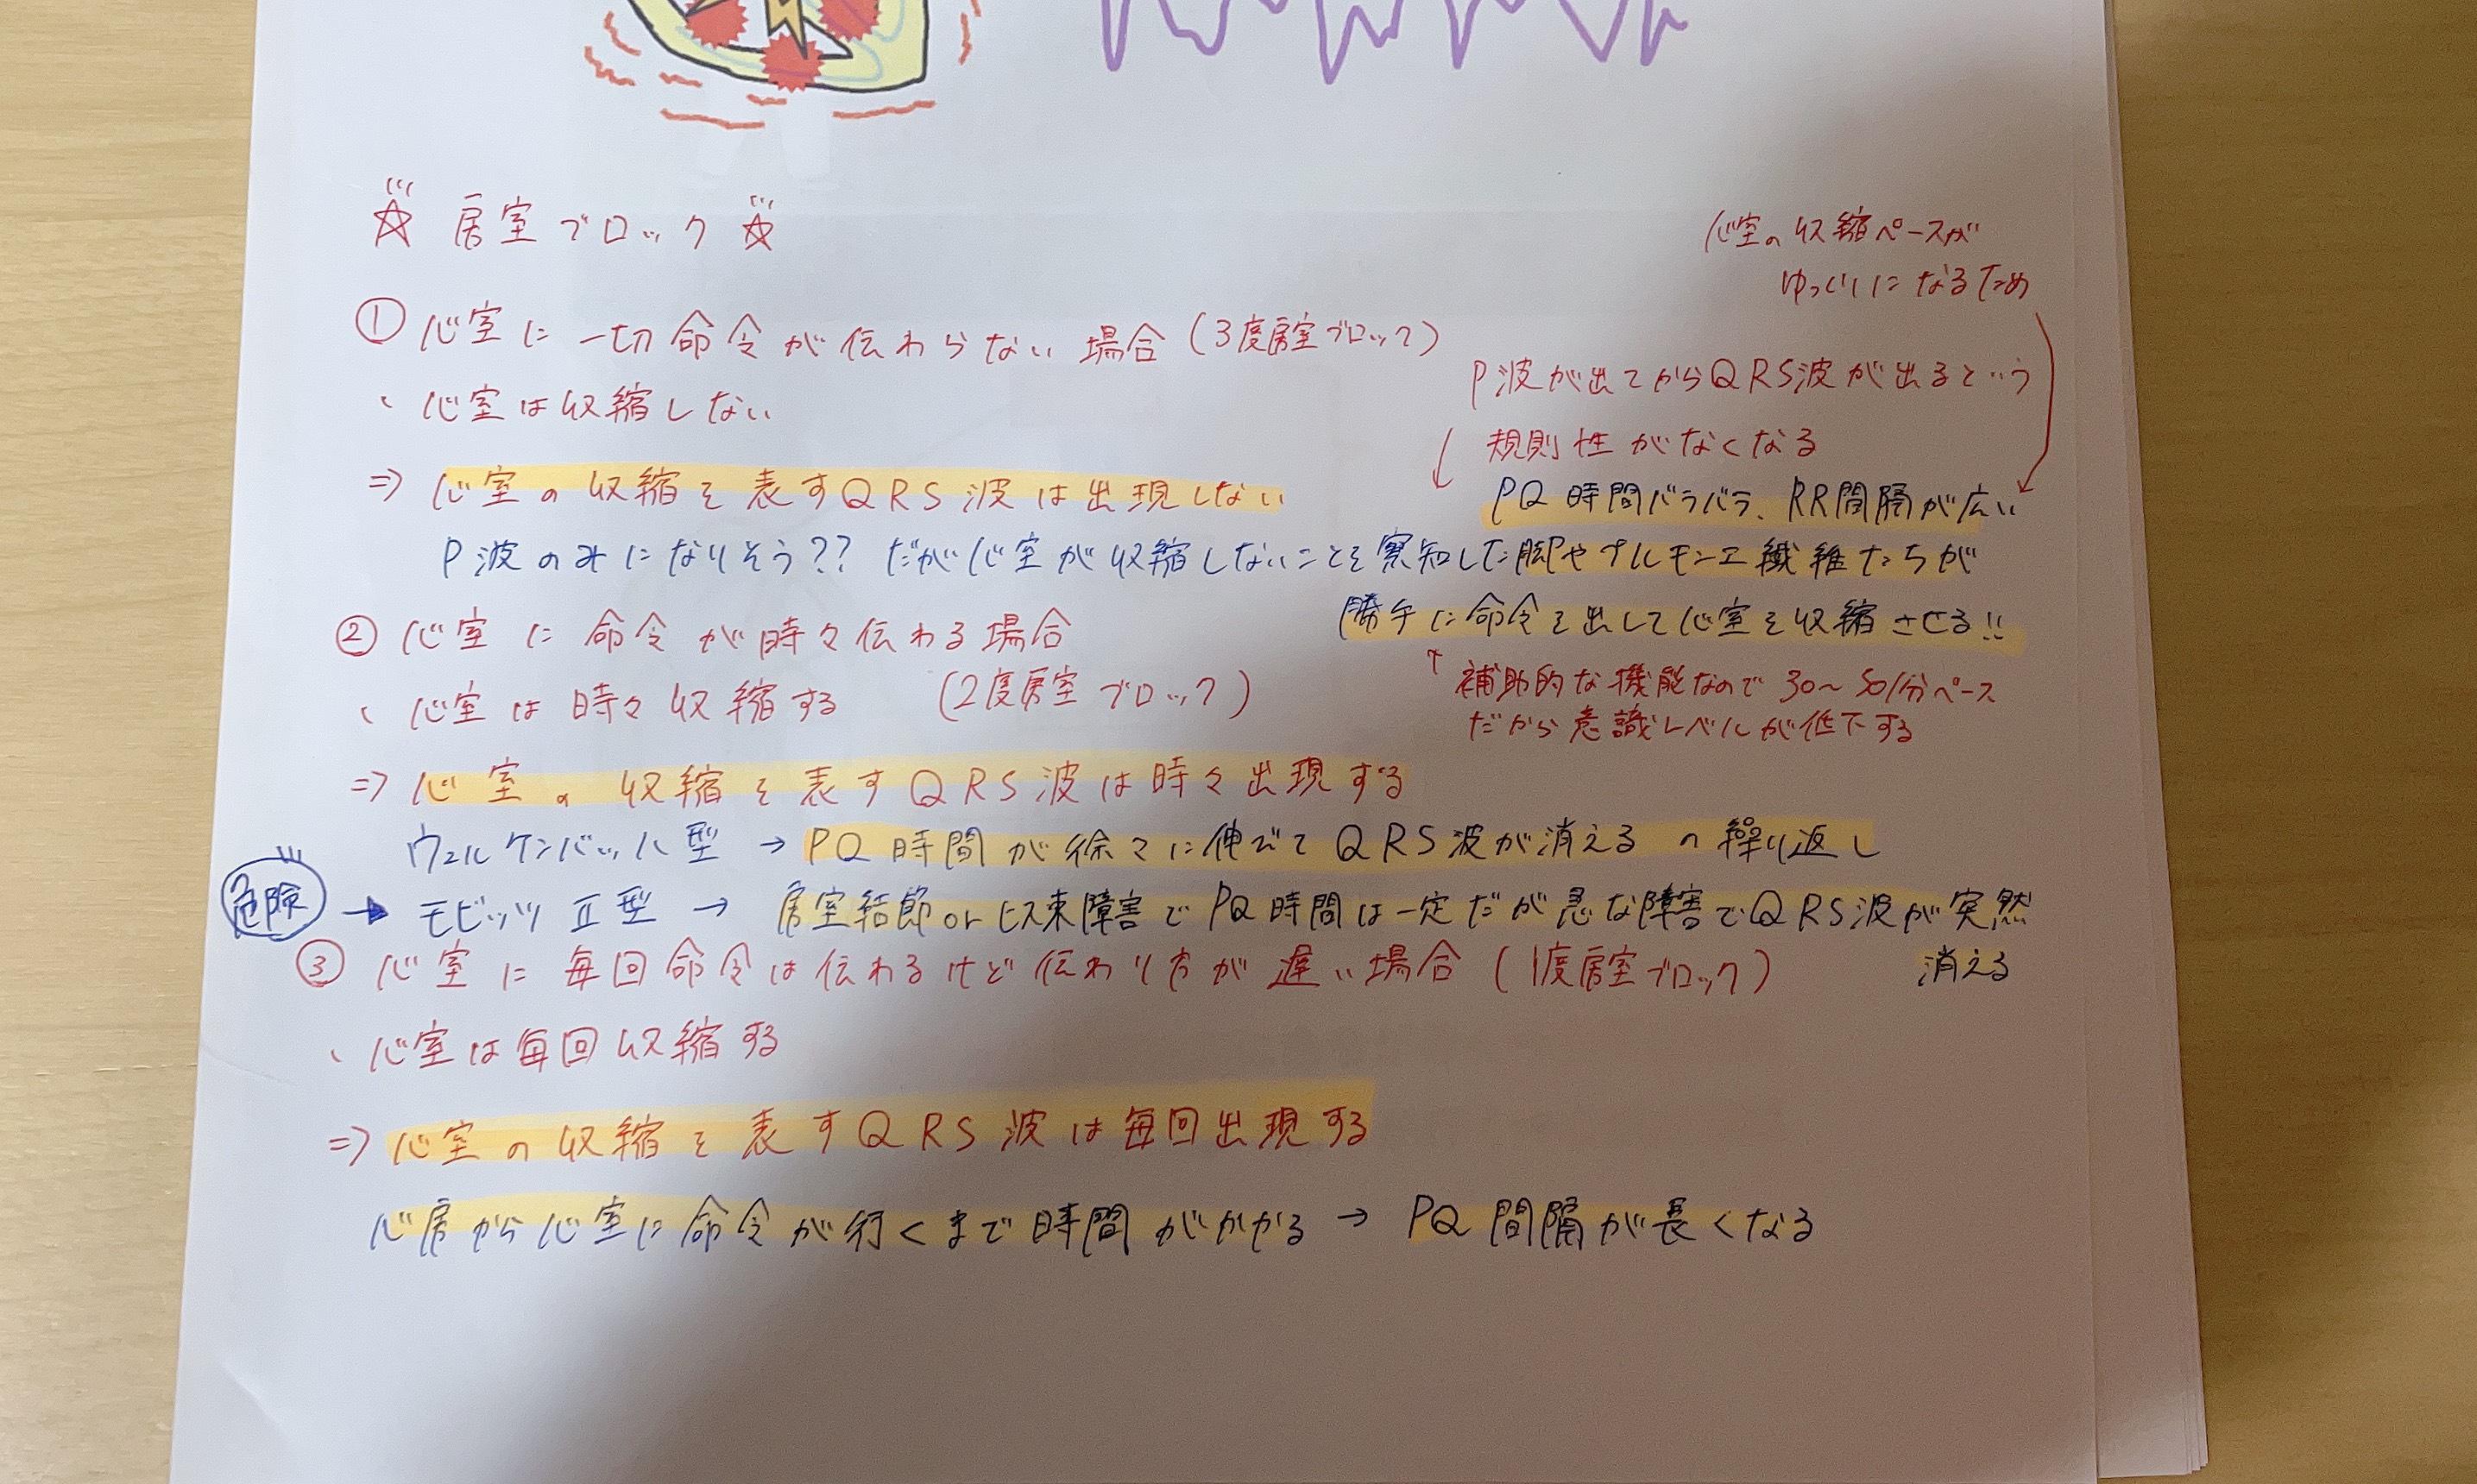 ☆ 房室ブロック ☆
① 心室に一切命令が伝わらない場合(3度房室ブロック)
・心室は収縮しない
⇒ 心室の収縮を表すQRS波は出現しない
心室の収縮ペースが
ゆっくりになるため
P波が出てからQRS波が出るという
↓ 規則性がなくなる
PQ時間バラバラ、RR間隔が広い
P波のみになりそう?? だが心室が収縮しないことを察知した脚やプルモンエ繊維たちが
勝手に命令を出して心室を収縮させる!!
↑ 補助的な機能なので30〜50/分ペース
だから意識レベルが低下する
② 心室に命令が時々伝わる場合
(2度房室ブロック)
・心室は時々収縮する
⇒ 心室の収縮を表すQRS波は時々出現する
ウェルケンバッハ型 → PQ時間が徐々に伸びてQRS波が消えるの繰り返し
危険 → モビッツⅡ型 → 房室結節orヒス束障害でPQ時間は一定だが急な障害でQRS波が突然
消える
③ 心室に毎回命令は伝わるけど伝わり方が遅い場合(1度房室ブロック)
・心室は毎回収縮する
⇒ 心室の収縮を表すQRS波は毎回出現する
心房から心室に命令が行くまで時間がかかる → PQ間隔が長くなる